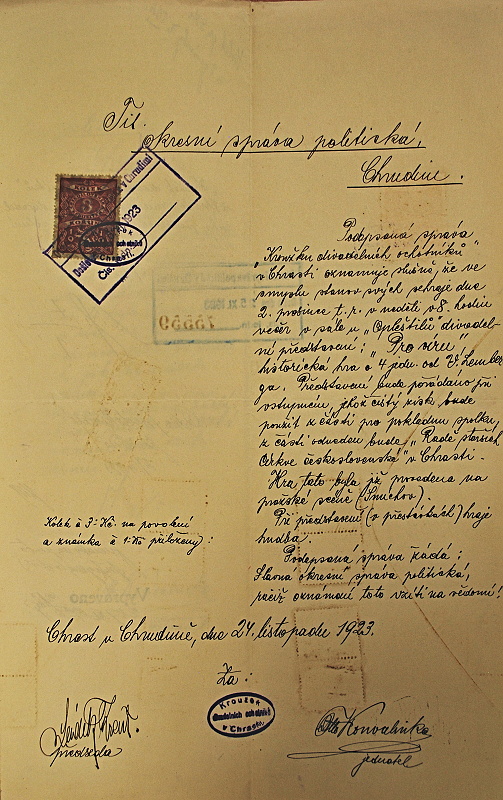 Tit.
okresní správa politická,
Chrudim.
KOLEK
v Chrudimi
1923
Kroužek
divadelních ochotníků
v Chrasti.
Podepsaná správa
„Kroužku divadelních ochotníků“
v Chrasti oznamuje slušně, že ve
smyslu stanov svých sehraje dne
2. prosince t. r. v neděli v 8. hodin
večer v sále u „Opleštilů“ divadel-
ní představení: „Pro vlast“
historická hra o 4 jedn. od V. Lember-
ga. Představení bude pořádáno při
vstupném, jehož čistý zisk bude
použit z části pro pokladnu spolku,
z části odveden bude „Radě starších
Církve československé“ v Chrasti.
Hra tato byla již provedena na
pražské scéně (Smíchov).
Při představení (v přestávkách) hraje
hudba.
Podepsaná správa žádá:
Slavná okresní správa politická,
račiž oznámení toto vzíti na vědomí!
Kolek à 3·Kč. na povolení
a známka à 1·Kč přiloženy:
Chrast u Chrudimě, dne 24. listopadu 1923.
Za:
Kroužek
divadelních ochotníků
v Chrasti.
předseda
Otto Konvalinka
jednatel